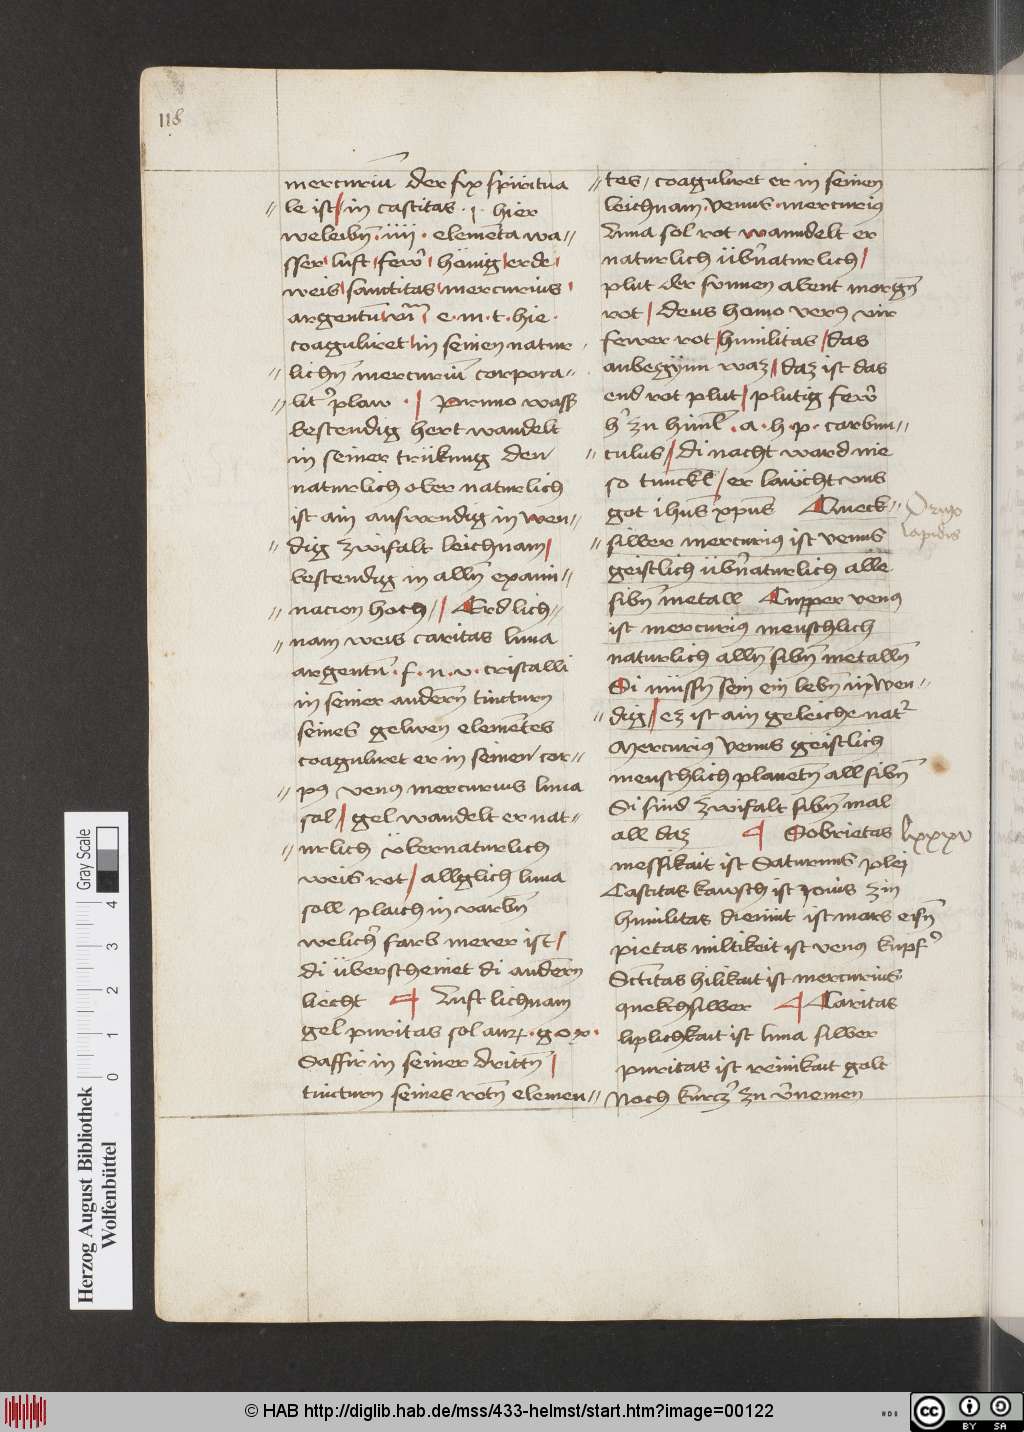 118
mercuriū der fix spiritua
le ist / in castitas · j · hier
weleibn̄ · iiij · elemēta wa//
sser luft fewr̄ hönig erde
weis sanctitas mercurius
argentū e · m · t · hie ·
coaguliret in seinen natur
// lichn̄ mercuriū corpora//
// plaw · / Primo wass
bestendig hert wandelt
in seiner trükung den
naturlich ober naturlich
ist ain auswendig in wen//
// dig zwifalt leichnam /
bestendig in alln̄ exami//
// nacion hoch // Erd lich//
// nam weis caritas luna
argentū · f · n · v · cristalli
in seiner andern̄ tincturn
seines gelwen elemētes
coaguliret er in seinen cor//
// pꝰ venꝰ mercurius luna
sol / gel wandelt er nat//
// urlich übernaturlich
weis rot / allglich luna
soll plaich in varbn̄
welicher farb merer ist /
di überscheinet di andern̄
liecht ¶ Luft lichnam
gel puritas sol aur · g · o · x ·
Saffir in seiner drittn̄ /
tincturn seines rotn̄ elemen//
// tes / coaguliret er in seinen
leichnam · venus · mercuriꝰ
luna sol rot wanndelt er
naturlich übn̄aturlich /
plut der sunnen abent morgn̄
rot / deus homo verꝰ vir
fewer rot / humilitas / das
anbegynn waz // daz ist das
end rot plut / plutig fewr̄
zu himl · a · h · p · carbun//
// culus // di nacht ward nie
so tunckl / er lawcht uns
got ihus̄ xpūs Queck//
// silber mercuriꝰ ist venus
geistlich übn̄aturlich alle
sibn̄ metall Cupper venꝰ
ist mercuriꝰ menschlich
naturlich alln̄ sibn̄ metalln̄
Si müssn̄ sein ein lebn̄ inwen//
// dig / ez ist ain geleiche nat
Mercuriꝰ venus geistlich
menschlich planetn̄ all sibn̄
Si sind zwifalt sibn̄ mal
all daz ¶ Sobrietas
messikait ist Saturnus plej
Castitas kawsch ist Jovis zin
humilitas diemut ist mars eisn̄
pietas miltikeit ist venꝰ kupf
Sctītas hilikait ist mercurius
quekchsilber ¶ Caritas
liplichkait ist luna silber
puritas ist reinikait golt
Noch zu vernemen
lapidis
lxxxv
Herzog August Bibliothek
Wolfenbüttel
Gray Scale
0 1 2 3 4
© HAB http://diglib.hab.de/mss/433-helmst/start.htm?image=00122
cc BY SA